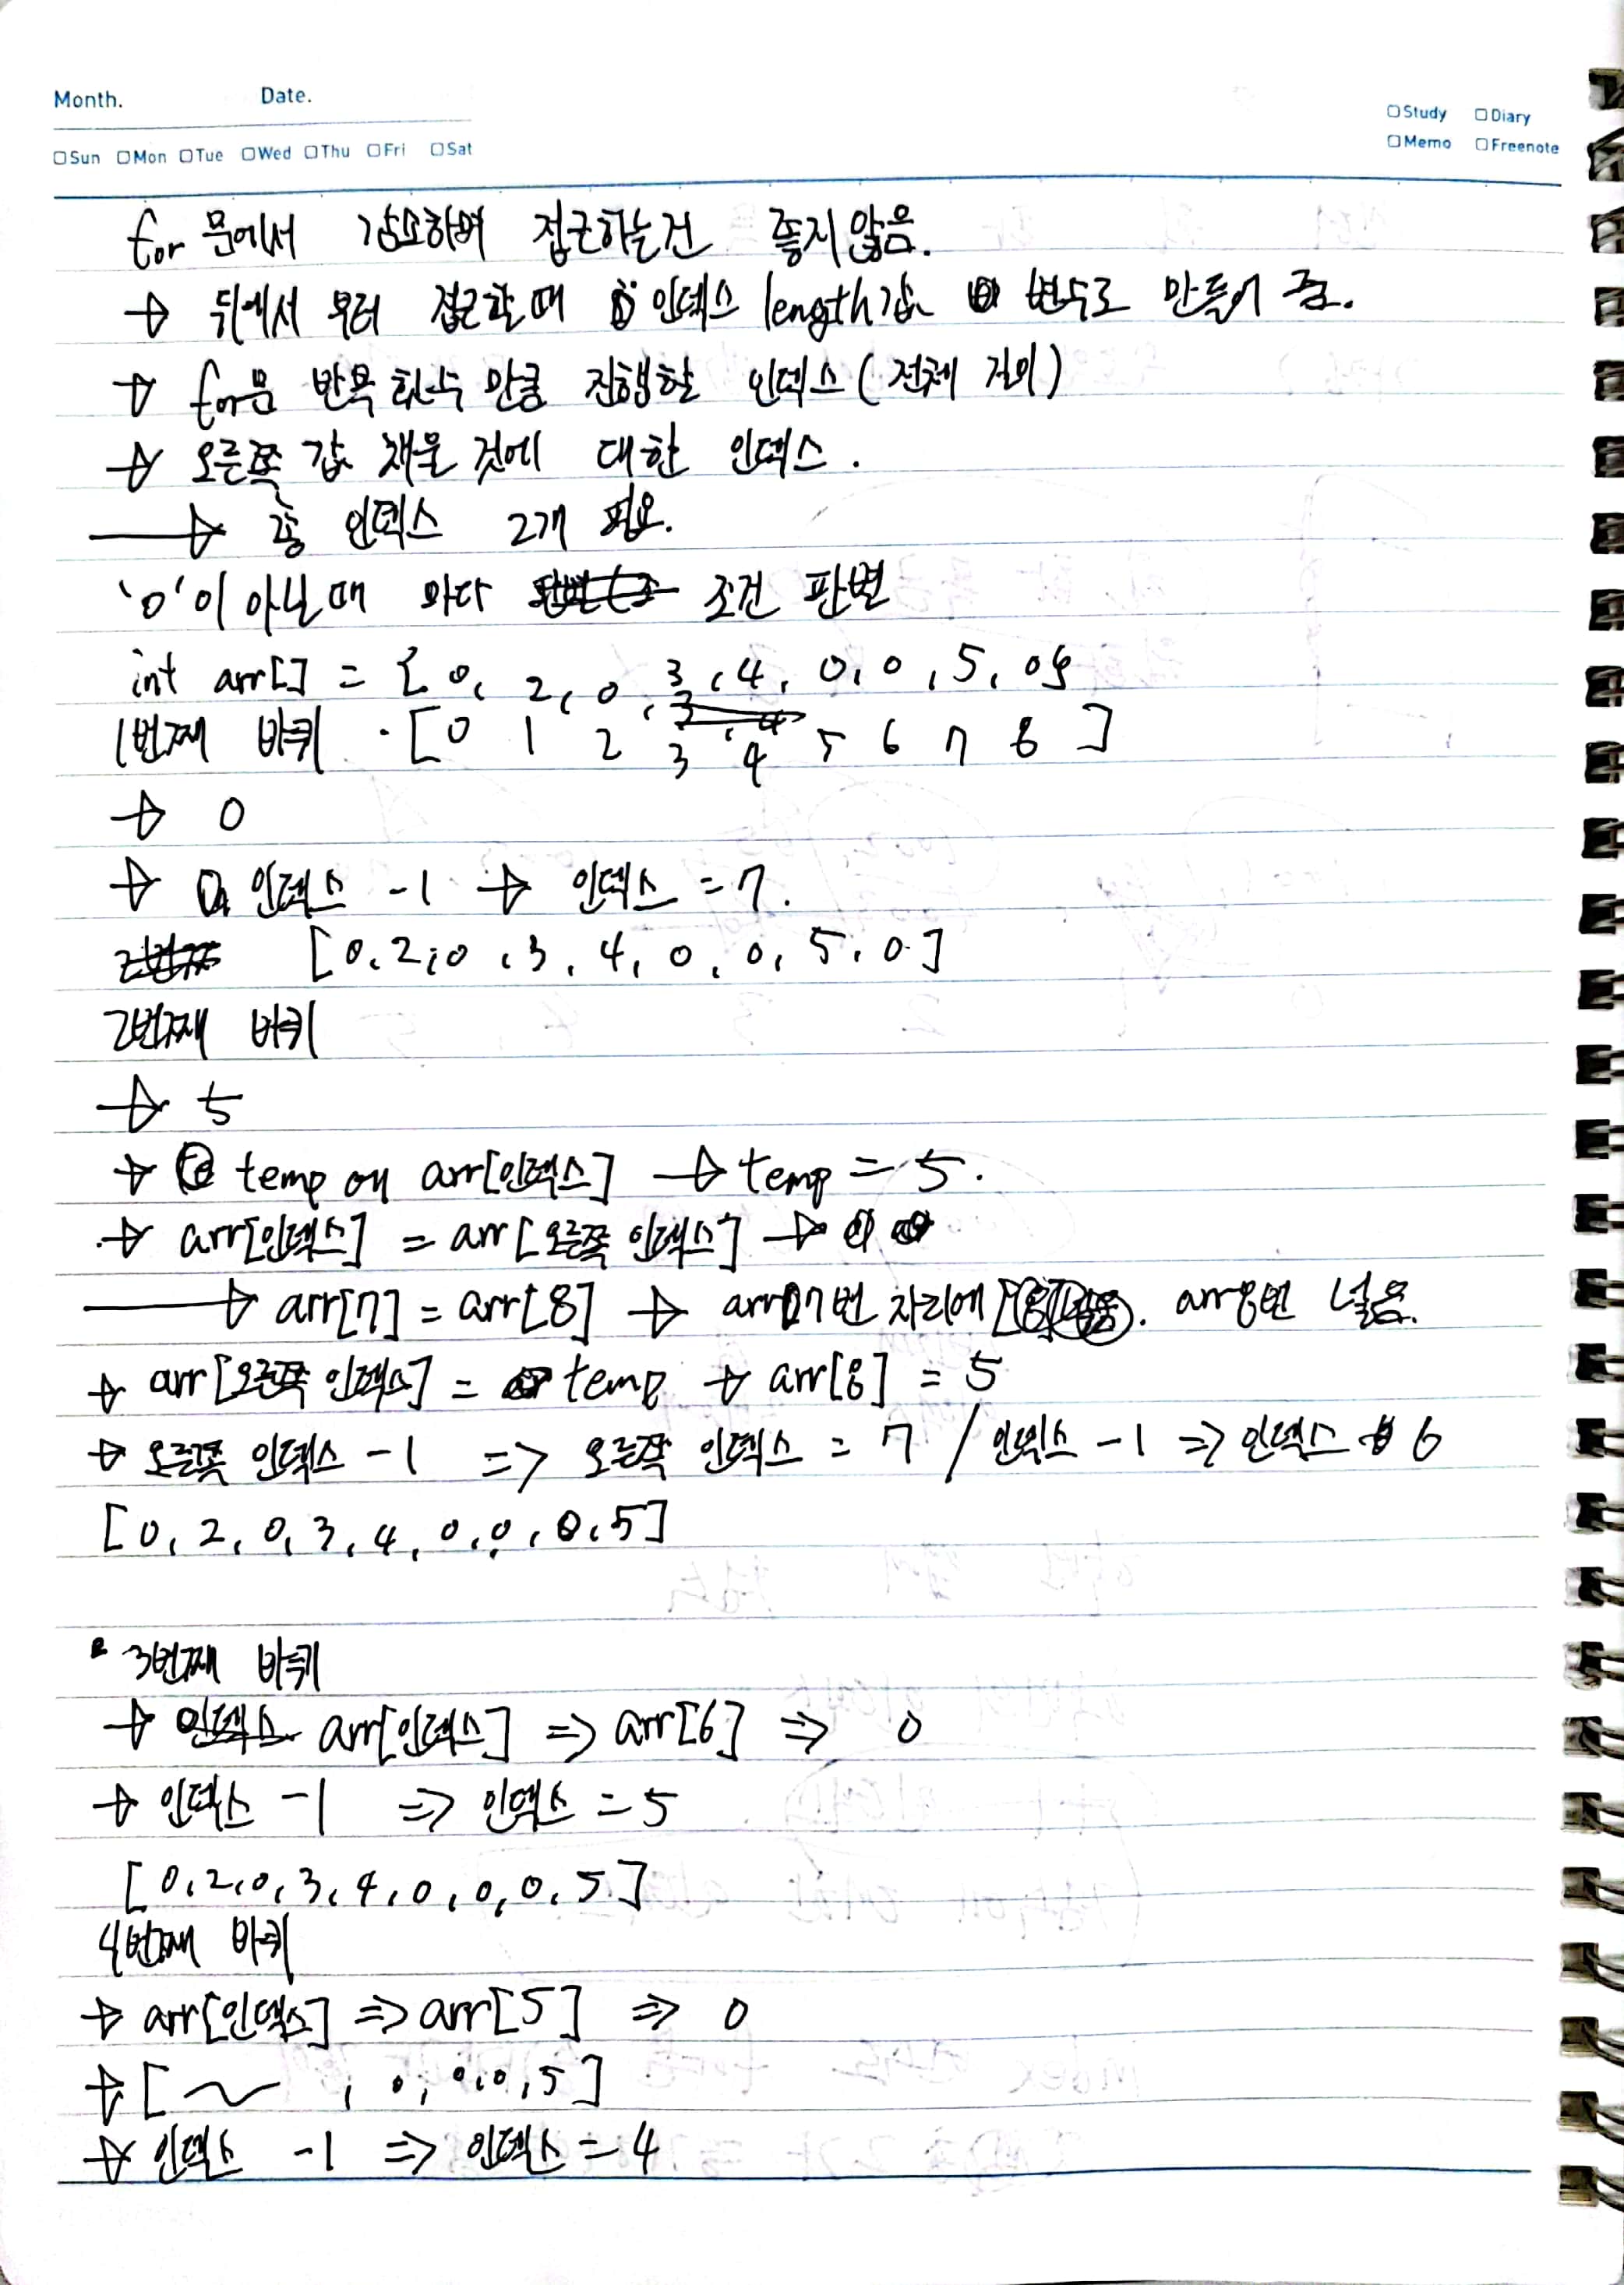 Month. Date.
□Sun □Mon □Tue □Wed □Thu □Fri □Sat
□Study □Diary
□Memo □Freenote
for 문에서 감소하며 접근하는건 좋지않음.
→ 뒤에서 부터 접근할때 인덱스 length값 변수로 만들어 줌.
→ for문 반복 횟수 만큼 진행할 인덱스 (전체 길이)
→ 오른쪽 값 채울 것에 대한 인덱스.
→ 총 인덱스 2개 필요.
'0'이 아닐때 마다 조건 판별
int arr[] = {0, 2, 0, 3, 4, 0, 0, 5, 0}
1번째 바퀴 · [0 1 2 3 4 5 6 7 8]
→ 0
→ 인덱스 -1 → 인덱스 = 7.
[0, 2, 0, 3, 4, 0, 0, 5, 0]
2번째 바퀴
→ 5
→ temp에 arr[인덱스] → temp = 5.
→ arr[인덱스] = arr[오른쪽 인덱스] →
→ arr[7] = arr[8] → arr 7번 자리에 arr8번 넣음.
→ arr[오른쪽 인덱스] = temp → arr[8] = 5
→ 오른쪽 인덱스 -1 => 오른쪽 인덱스 = 7 / 인덱스 -1 => 인덱스 6
[0, 2, 0, 3, 4, 0, 0, 0, 5]
3번째 바퀴
→ arr[인덱스] => arr[6] => 0
→ 인덱스 -1 => 인덱스 = 5
[0, 2, 0, 3, 4, 0, 0, 0, 5]
4번째 바퀴
→ arr[인덱스] => arr[5] => 0
→ [ ~ , 0, 0, 0, 5]
→ 인덱스 -1 => 인덱스 = 4